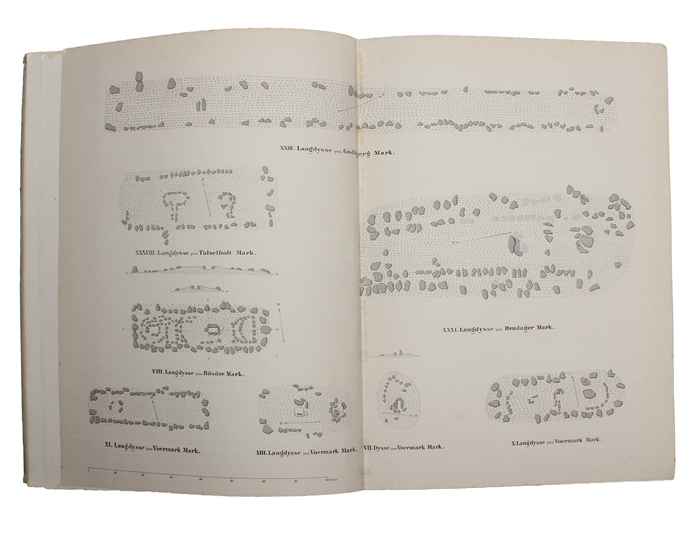 XXIII. Langdysse paa Mark.
XXXVIII. Langdysse paa Tidselholt Mark.
XXXI. Langdysse paa Brudager Mark.
VIII. Langdysse paa Bösöre Mark.
XI. Langdysse paa Voermark Mark.
XIII. Langdysse paa Voermark Mark.
VII. Dysse paa Voermark Mark.
X. Langdysse paa Voermark Mark.